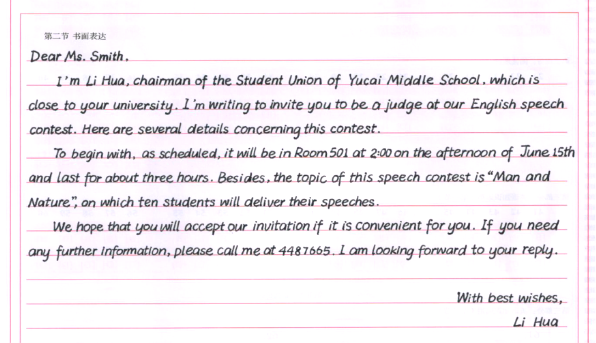 第二节 书面表达
Dear Ms. Smith,
I'm Li Hua, chairman of the Student Union of Yucai Middle School, which is
close to your university. I'm writing to invite you to be a judge at our English speech
contest. Here are several details concerning this contest.
To begin with, as scheduled, it will be in Room 501 at 2:00 on the afternoon of June 15th
and last for about three hours. Besides, the topic of this speech contest is "Man and
Nature", on which ten students will deliver their speeches.
We hope that you will accept our invitation if it is convenient for you. If you need
any further information, please call me at 4487665. I am looking forward to your reply.
With best wishes,
Li Hua